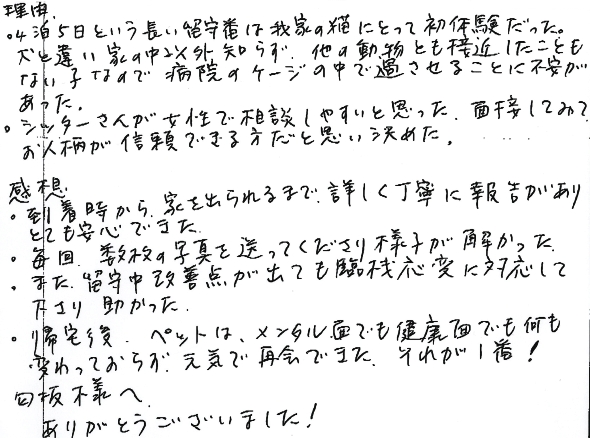 理由
・4泊5日という長い留守番は我家の猫にとって初体験だった。
犬と違い家の中以外知らず、他の動物とも接近したことも
ない子なので病院のケージの中で過させることに不安が
あった。
・シッターさんが女性で相談しやすいと思った。面接してみて
お人柄が信頼できる方だと思い決めた。
感想
・到着時から、家を出られるまで、詳しく丁寧に報告があり
とても安心できた
・毎回、数枚の写真を送ってくださり様子が解かった
・また、留守中改善点が出ても臨機応変に対応して
下さり助かった
・帰宅後、ペットは、メンタル面でも健康面でも何も
変わっておらず、元気で再会できた、それが1番！
匂坂様へ
ありがとうございました！